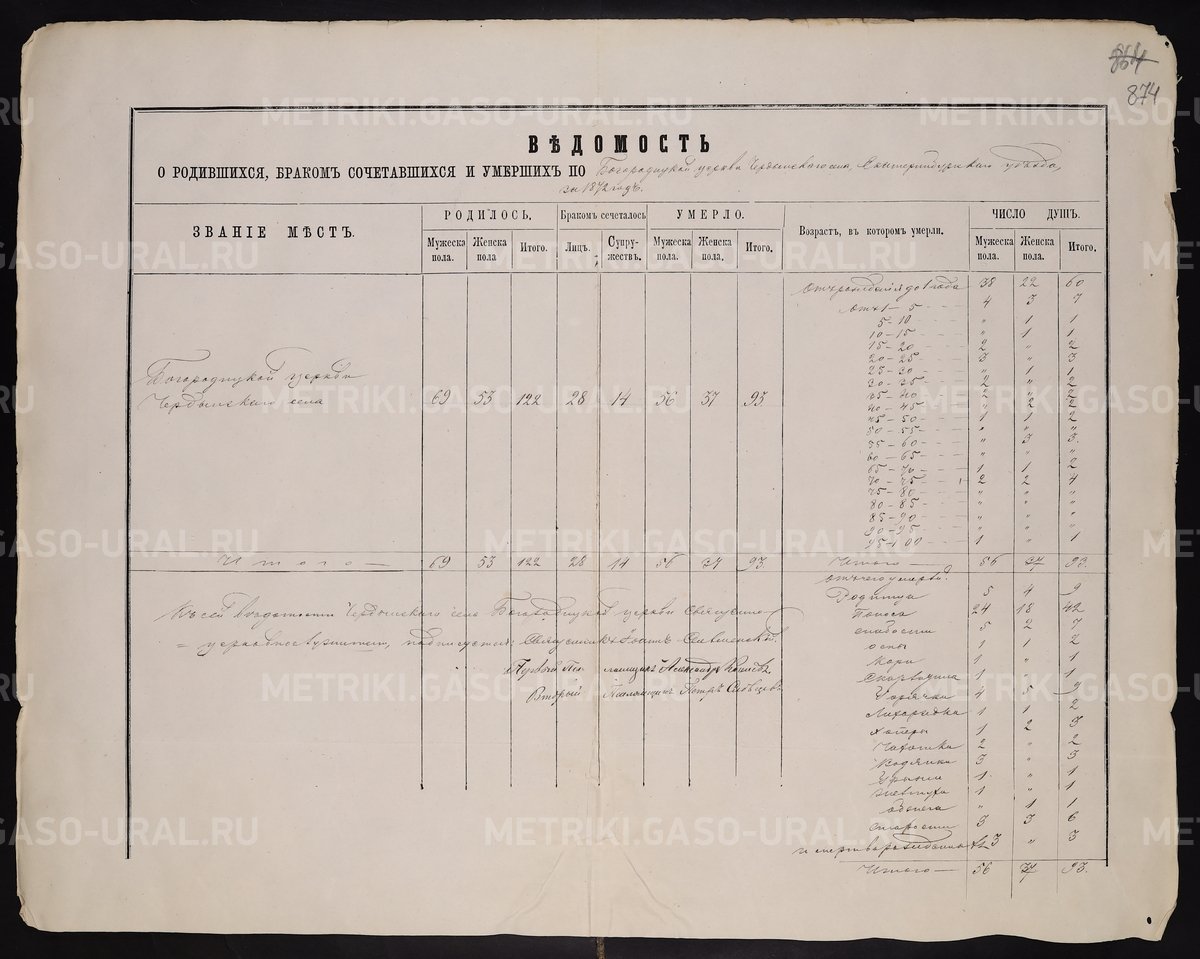 864
874
ВѢДОМОСТЬ
О РОДИВШИХСЯ, БРАКОМЪ СОЧЕТАВШИХСЯ И УМЕРШИХЪ ПО Богородицкой церкви села, Екатеринбургскаго уѣзда,
за 1872 годъ.
ЗВАНІЕ МѢСТЪ. РОДИЛОСЬ. Бракомъ сочеталось УМЕРЛО. Возрастъ, въ которомъ умерли. ЧИСЛО ДУШЪ.
Мужеска пола. Женска пола Итого. Лицъ. Супружествъ. Мужеска пола. Женска пола. Итого. Мужеска пола. Женска пола. Итого.
Отъ рожденія до 1 года 38 22 60
Отъ 1 - 5 4 3 7
5 - 10 " 1 1
10 - 15 " 1 1
15 - 20 2 " 2
20 - 25 3 " 3
25 - 30 " 1 1
30 - 35 2 " 2
35 - 40 2 " 2
40 - 45 " 2 2
45 - 50 1 1 2
50 - 55 " " "
55 - 60 " 3 3
60 - 65 " " "
65 - 70 1 1 2
70 - 75 2 2 4
75 - 80 " " "
80 - 85 " " "
85 - 90 " " "
90 - 95 " " "
95 - 100 1 " 1
Богородицкой церкви
села 69 53 122 28 14 56 37 93
Итого 69 53 122 28 14 56 37 93 Итого 56 37 93
Отъ чего умерли?
Родимца 5 4 9
Поноса 24 18 42
слабости 5 2 7
оспы 1 1 2
Кори 1 " 1
1 " 1
Горячки 4 5 9
Лихорадка 1 1 2
1 2 3
Чахотка 2 " 2
Водянки 3 " 3
Грыжи 1 " 1
1 " 1
" 1 1
Старости 3 3 6
3 " 3
Итого 56 37 93.
Къ сей вѣдомости села Богородицкой церкви Священно-
= церковнослужители, подписуются: Священникъ Іоаннъ
Первый Псаломщикъ Александръ
Вторый Псаломщикъ Петръ
METRIKI.GASO-URAL.RU